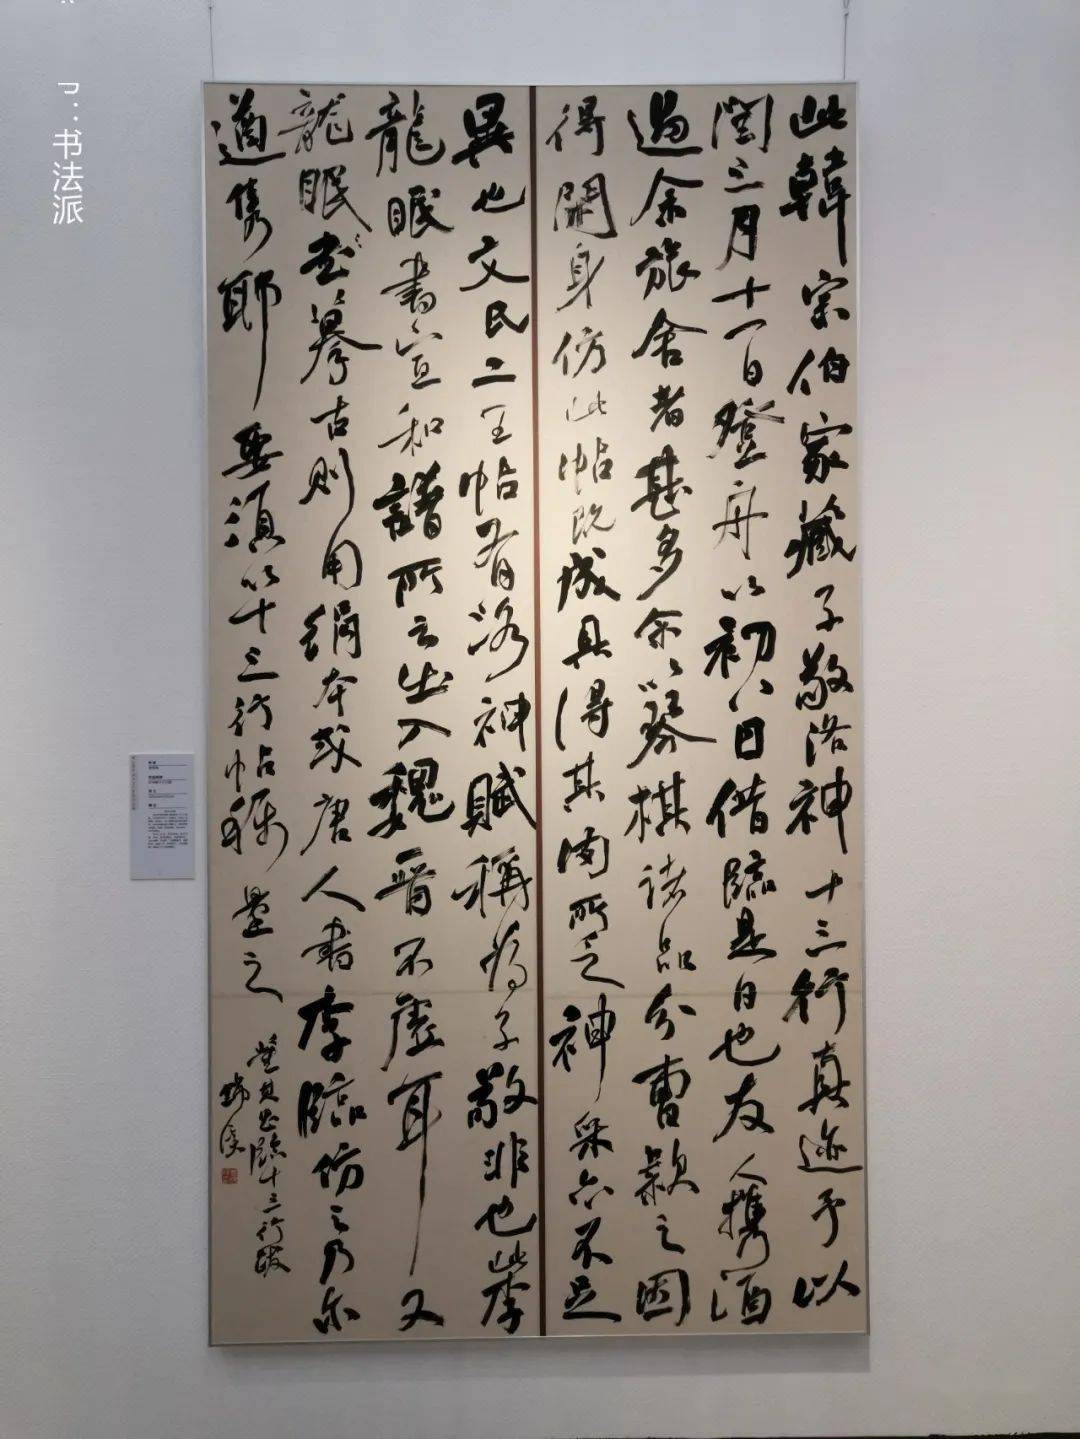 此韓宗伯家藏子敬洛神十三行真迹予以
閏三月十一日登舟以初八日借臨是日也友人攜酒
過余旅舍者甚多余以琴棋諸品分曹款之因
得閒身仿此帖既成具得其肉所乏神采亦不足
異也文氏二王帖有洛神賦稱為子敬非也此李
龍眠書宣和譜所云出入魏晉不虛耳又
龍眠書摹古則用絹本或唐人書李臨仿之乃尔
遒雋耶要須以十三行帖稱量之
董其昌臨十三行跋
书法派